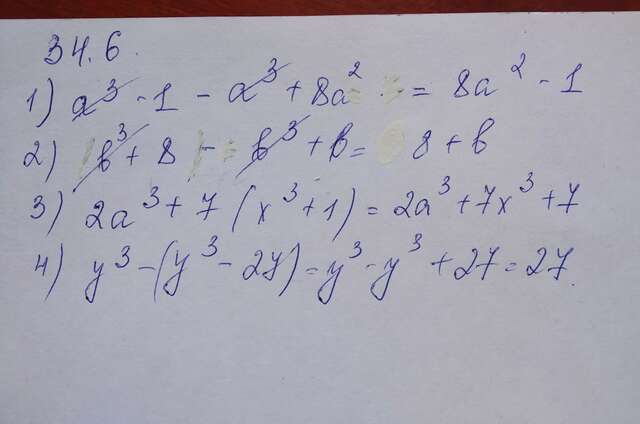 34.6.
1) a³ - 1 - a³ + 8a² = 8a² - 1
2) b³ + 8 - b³ + b = 8 + b
3) 2a³ + 7 (x³ + 1) = 2a³ + 7x³ + 7
4) y³ - (y³ - 27) = y³ - y³ + 27 = 27.